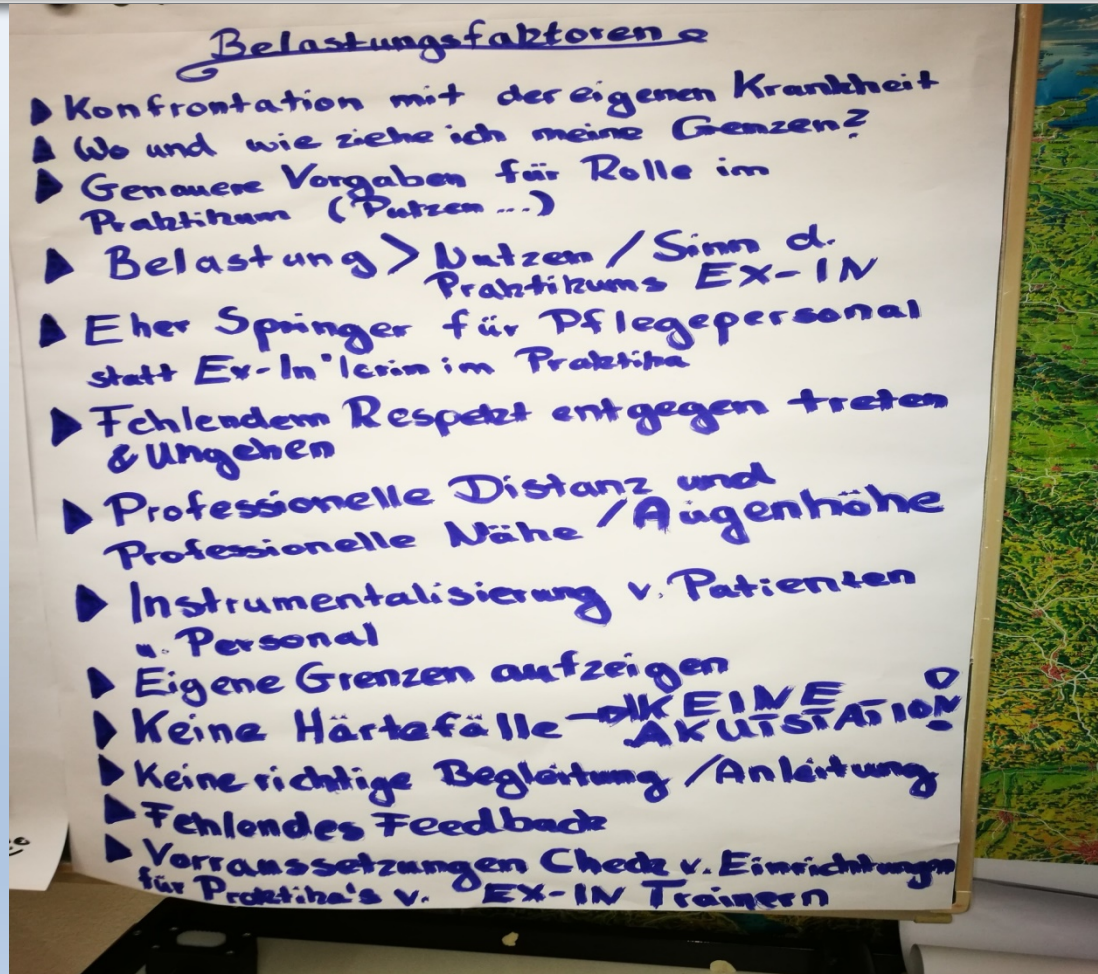 Belastungsfaktoren
Konfrontation mit der eigenen Krankheit
Wo und wie ziehe ich meine Genzen?
Genauere Vorgaben für Rolle im
Praktikum (Putzen ...)
Belastung > Nutzen / Sinn d.
Praktikums EX-IN
Eher Springer für Pflegepersonal
statt Ex-In'lerin im Praktika
Fehlendem Respekt entgegen treten
& Umgehen
Professionelle Distanz und
Professionelle Nähe / Augenhöhe
Instrumentalisierung v. Patienten
u. Personal
Eigene Grenzen aufzeigen
Keine Härtefälle → KEINE
AKUTSTATION!
Keine richtige Begleitung / Anleitung
Fehlendes Feedback
Vorraussetzungen Check v. Einrichtungen
für Praktika's v. EX-IN Trainern